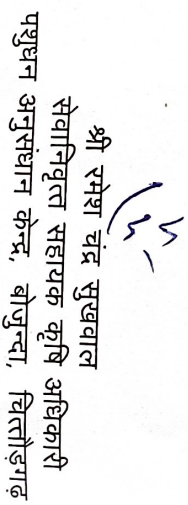 श्री रमेश चंद्र सुखवाल
सेवानिवृत सहायक कृषि अधिकारी
पशुधन अनुसंधान केन्द्र, बोजुन्दा, चित्तोड़गढ़